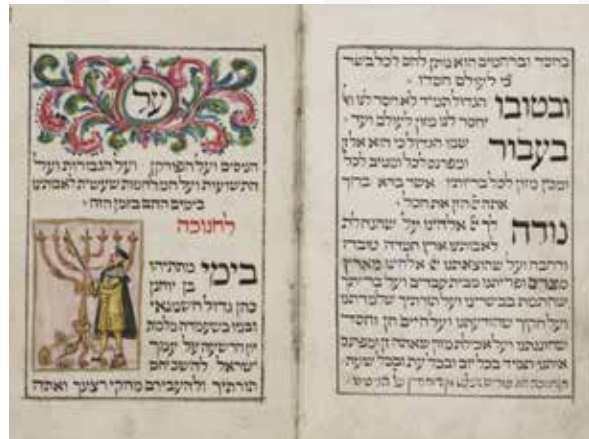 בחסד וברחמים הוא נותן לחם לכל בשר
כי לעולם חסדו
ובטובו הגדול תמיד לא חסר לנו
יחסר לנו מזון לעולם ועד
בעבור שמו הגדול כי הוא אל זן
ומפרנס לכל ומטיב לכל
ומכין מזון לכל בריותיו אשר ברא ברוך
אתה הזן את הכל
נודה לך אלהינו על שהנחלת
לאבותינו ארץ חמדה טובה
ורחבה ועל שהוצאתנו אלהינו מארץ
מצרים ופדיתנו מבית עבדים ועל בריתך
שחתמת בבשרינו ועל תורתך שלמדתנו
ועל חקיך שהודעתנו ועל חיים חן וחסד
שחוננתנו ועל אכילת מזון שאתה זן ומפרנס
אותנו תמיד בכל יום ובכל עת ובכל שעה
על
הניסים ועל הפורקן ועל הגבורות ועל
התשועות ועל המלחמות שעשית לאבותינו
בימים ההם בזמן הזה
לחנוכה
בימי מתתיהו
בן יוחנן
כהן גדול חשמנאי
ובניו כשעמדה מלכות
יון הרשעה על עמך
ישראל להשכיחם
תורתיך ולהעבירם מחקי רצונך ואתה